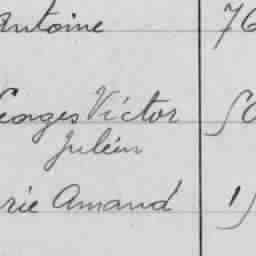 Antoine 76
Georges Victor 50
Julien
rie Amand 15